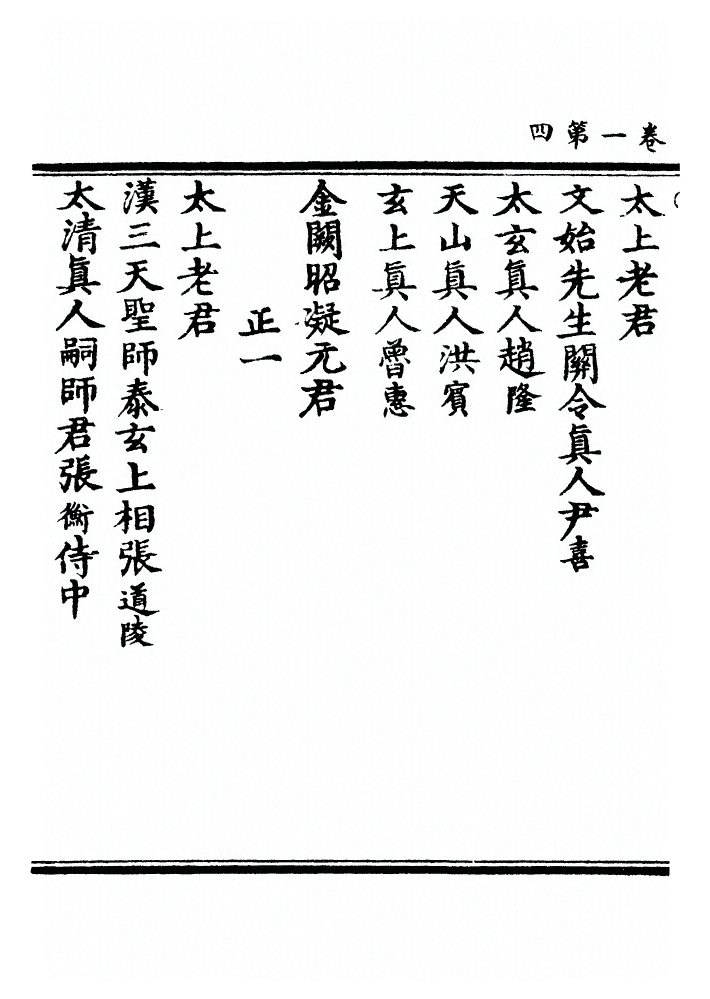 卷一第四
太上老君
文始先生關令眞人尹喜
太玄眞人趙隆
天山眞人洪賓
玄上眞人曾惠
金闕昭凝元君
正一
太上老君
漢三天聖師泰玄上相張道陵
太清眞人嗣師君張衡侍中